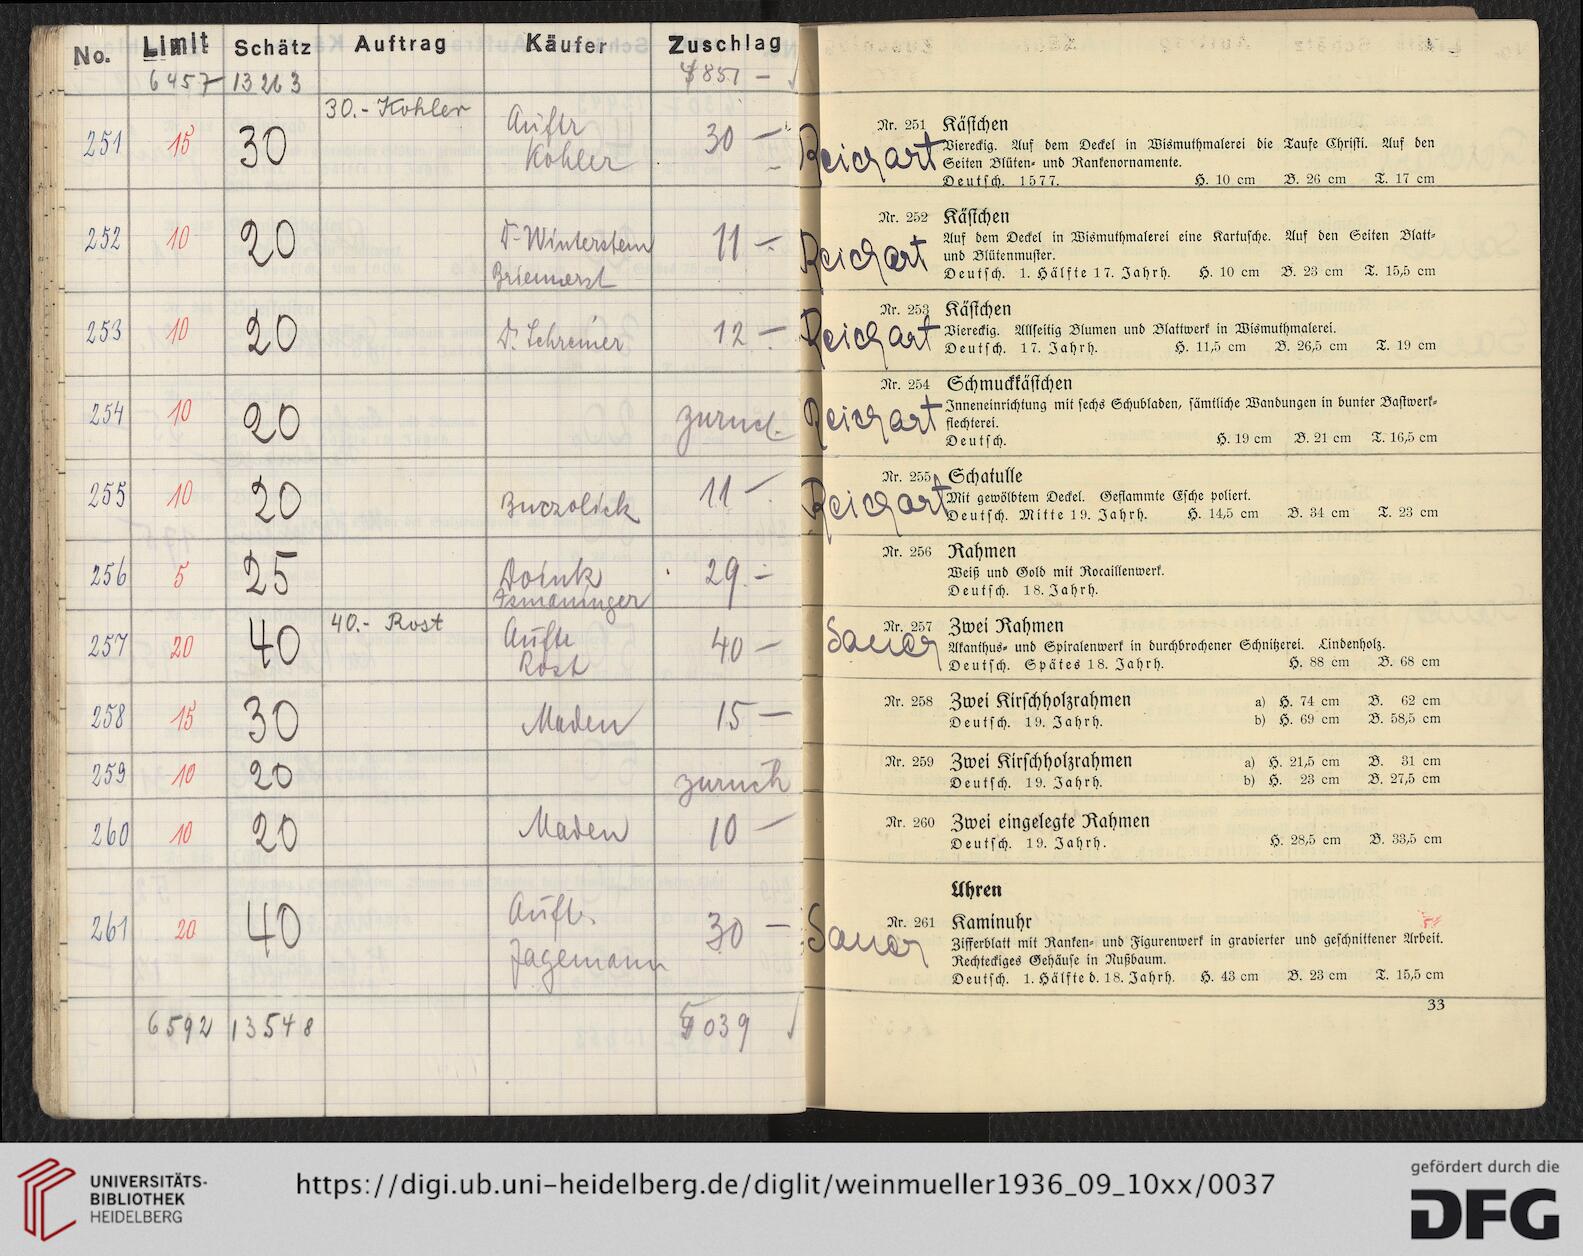 No. Limit Schätz Auftrag Käufer Zuschlag
6457 13263 4851 –
30.- Kohler
251 15 30 Auftr Kohler 30 –
252 10 20 Dr. Winterstein 11 –
253 10 20 Dr. Schreiner 12 –
254 10 20 zurück
255 10 20 11 –
256 5 25 Ismaninger 29.–
40.- Rost
257 20 40 Auftr Rost 40 –
258 15 30 Maden 15 –
259 10 20 zurück
260 10 20 Maden 10 –
261 20 40 Auftr. Jagemann 30 –
6592 13548 5039
Reichart
Nr. 251 Kästchen
Viereckig. Auf dem Deckel in Wismuthmalerei die Taufe Christi. Auf den
Seiten Blüten- und Rankenornamente.
Deutsch. 1577. H. 10 cm B. 26 cm T. 17 cm
Reichart
Nr. 252 Kästchen
Auf dem Deckel in Wismuthmalerei eine Kartusche. Auf den Seiten Blatt-
und Blütenmuster.
Deutsch. 1. Hälfte 17. Jahrh. H. 10 cm B. 23 cm T. 15,5 cm
Reichart
Nr. 253 Kästchen
Viereckig. Allseitig Blumen und Blattwerk in Wismuthmalerei.
Deutsch. 17. Jahrh. H. 11,5 cm B. 26,5 cm T. 19 cm
Reichart
Nr. 254 Schmuckkästchen
Inneneinrichtung mit sechs Schubladen, sämtliche Wandungen in bunter Bastwerk-
flechterei.
Deutsch. H. 19 cm B. 21 cm T. 16,5 cm
Reichart
Nr. 255 Schatulle
Mit gewölbtem Deckel. Geflammte Esche poliert.
Deutsch. Mitte 19. Jahrh. H. 14,5 cm B. 34 cm T. 23 cm
Nr. 256 Rahmen
Weiß und Gold mit Rocaillenwerk.
Deutsch. 18. Jahrh.
Sauer
Nr. 257 Zwei Rahmen
Akanthus- und Spiralenwerk in durchbrochener Schnitzerei. Lindenholz.
Deutsch. Spätes 18. Jahrh. H. 88 cm B. 68 cm
Nr. 258 Zwei Kirschholzrahmen a) H. 74 cm B. 62 cm
Deutsch. 19. Jahrh. b) H. 69 cm B. 58,5 cm
Nr. 259 Zwei Kirschholzrahmen a) H. 21,5 cm B. 31 cm
Deutsch. 19. Jahrh. b) H. 23 cm B. 27,5 cm
Nr. 260 Zwei eingelegte Rahmen
Deutsch. 19. Jahrh. H. 28,5 cm B. 33,5 cm
Uhren
Sauer
Nr. 261 Kaminuhr
Zifferblatt mit Ranken- und Figurenwerk in gravierter und geschnittener Arbeit.
Rechteckiges Gehäuse in Nußbaum.
Deutsch. 1. Hälfte d. 18. Jahrh. H. 43 cm B. 23 cm T. 15,5 cm
33
UNIVERSITÄTS-
BIBLIOTHEK
HEIDELBERG
https://digi.ub.uni-heidelberg.de/diglit/weinmueller1936_09_10xx/0037
gefördert durch die
DFG